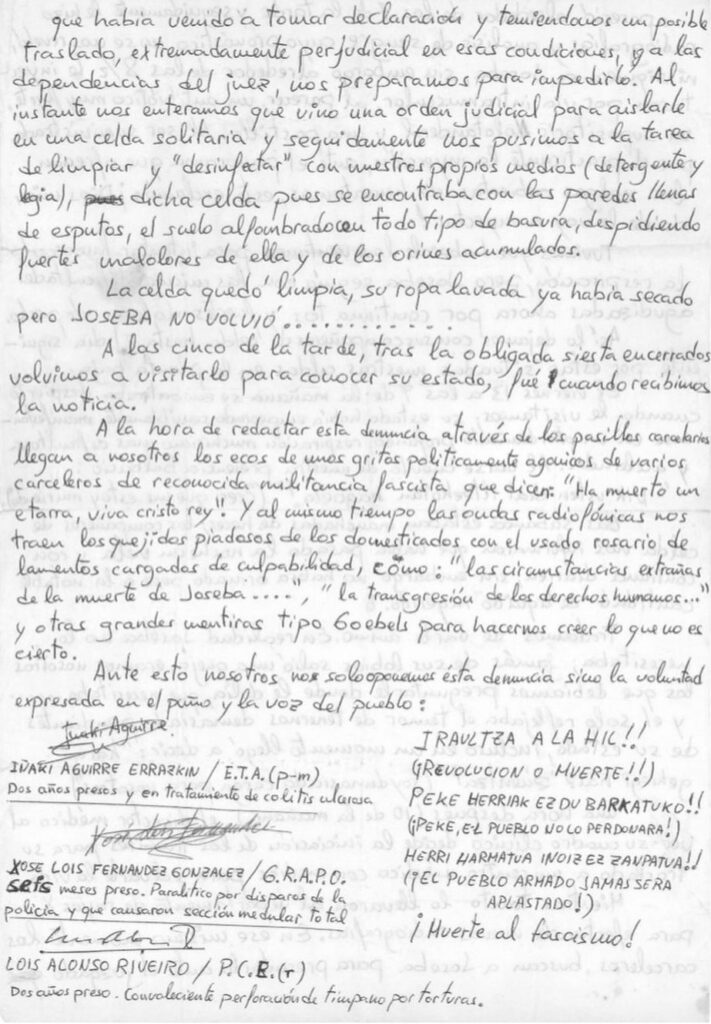 que había venido a tomar declaración y temiendonos un posible
traslado, extremadamente perjudicial en esas condiciones, y a las
dependencias del juez, nos preparamos para impedirlo. Al
instante nos enteramos que vino una orden judicial para aislarle
en una celda solitaria y seguidamente nos pusimos a la tarea
de limpiar y "desinfectar" con nuestros propios medios (detergente y
legia), pues dicha celda pues se encontraba con las paredes llenas
de esputos, el suelo alfombrado con todo tipo de basura, despidiendo
fuertes malolores de ella y de los orines acumulados.
La celda quedó limpia, su ropa lavada ya habia secado
pero JOSEBA NO VOLVIÓ............
A las cinco de la tarde, tras la obligada siesta encerrados
volvimos a visitarlo para conocer su estado, fué cuando recibimos
la noticia.
A la hora de redactar esta denuncia através de los pasillos carcelarios
llegan a nosotros los ecos de unos gritos politicamente agonicos de varios
carceleros de reconocida militancia fascista que dicen: "Ha muerto un
etarra, viva cristo rey". Y al mismo tiempo las ondas radiofónicas nos
traen los quejidos piadosos de los domesticados con el usado rosario de
lamentos cargados de culpabilidad, como: "las circunstancias extrañas
de la muerte de Joseba ....", "la transgresión de los derechos humanos..."
y otras grandes mentiras tipo Goebels para hacernos creer lo que no es
cierto.
Ante esto nosotros no solo oponemos esta denuncia sino la voluntad
expresada en el puño y la voz del pueblo:
Iñaki Aguirre
IÑAKI AGUIRRE ERRAZKIN / E.T.A. (p-m)
Dos años presos y en tratamiento de colitis ulcerosa
XOSE LOIS FERNANDEZ GONZALEZ / G.R.A.P.O.
seis meses preso. Paralitico por disparos de la
policia y que causaron sección medular total
LOIS ALONSO RIVEIRO / P.C.E.(r)
Dos años preso. Convaleciente perforación de timpano por torturas.
IRAULTZA ALA HIL!!
(¡REVOLUCION O MUERTE!!)
PEKE HERRIAK EZ DU BARKATUKO!!
(¡PEKE, EL PUEBLO NO LO PERDONARA!)
HERRI HARMATUA INOIZ EZ ZANPATUA!!
(¡EL PUEBLO ARMADO JAMAS SERA
APLASTADO!)
¡Muerte al fascismo!